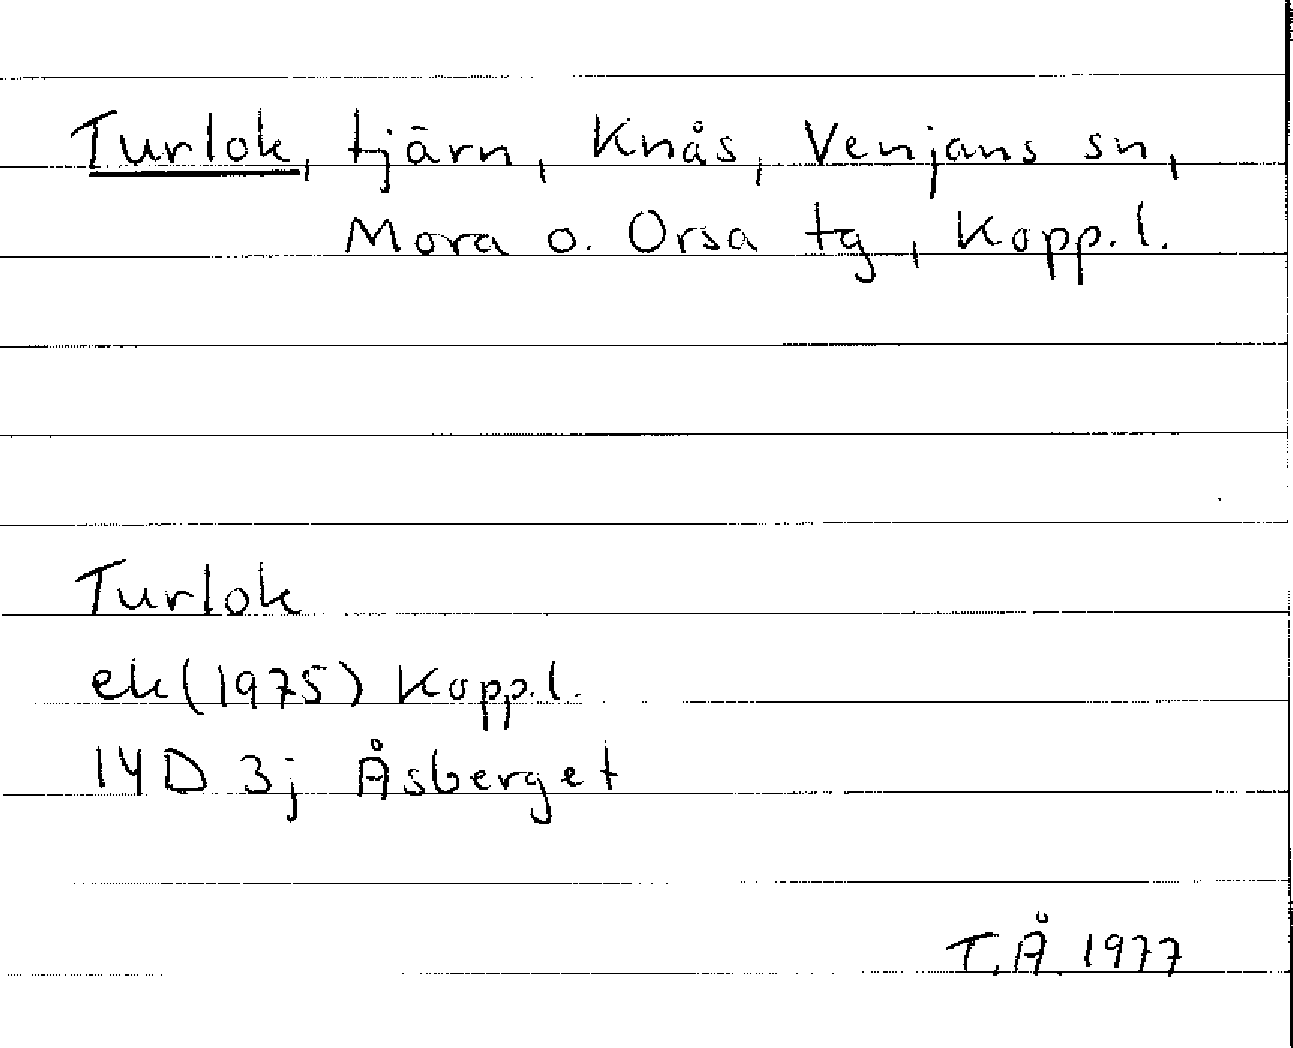 Turlok, tjärn, Knås, Venjans sn,
Mora o. Orsa tg, Kopp.l.
Turlok
ek(1975) Kopp.l.
14D 3j Åsberget
T.Å. 1977